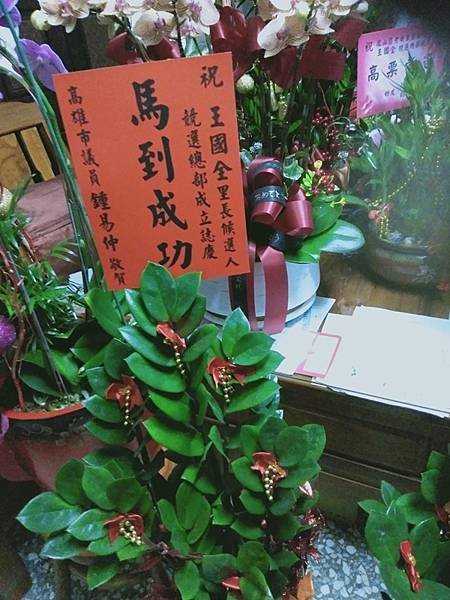 祝
王國全里長候選人
競選總部成立誌慶
馬到成功
高雄市議員 鍾易仲 敬賀
祝
王國全
高票